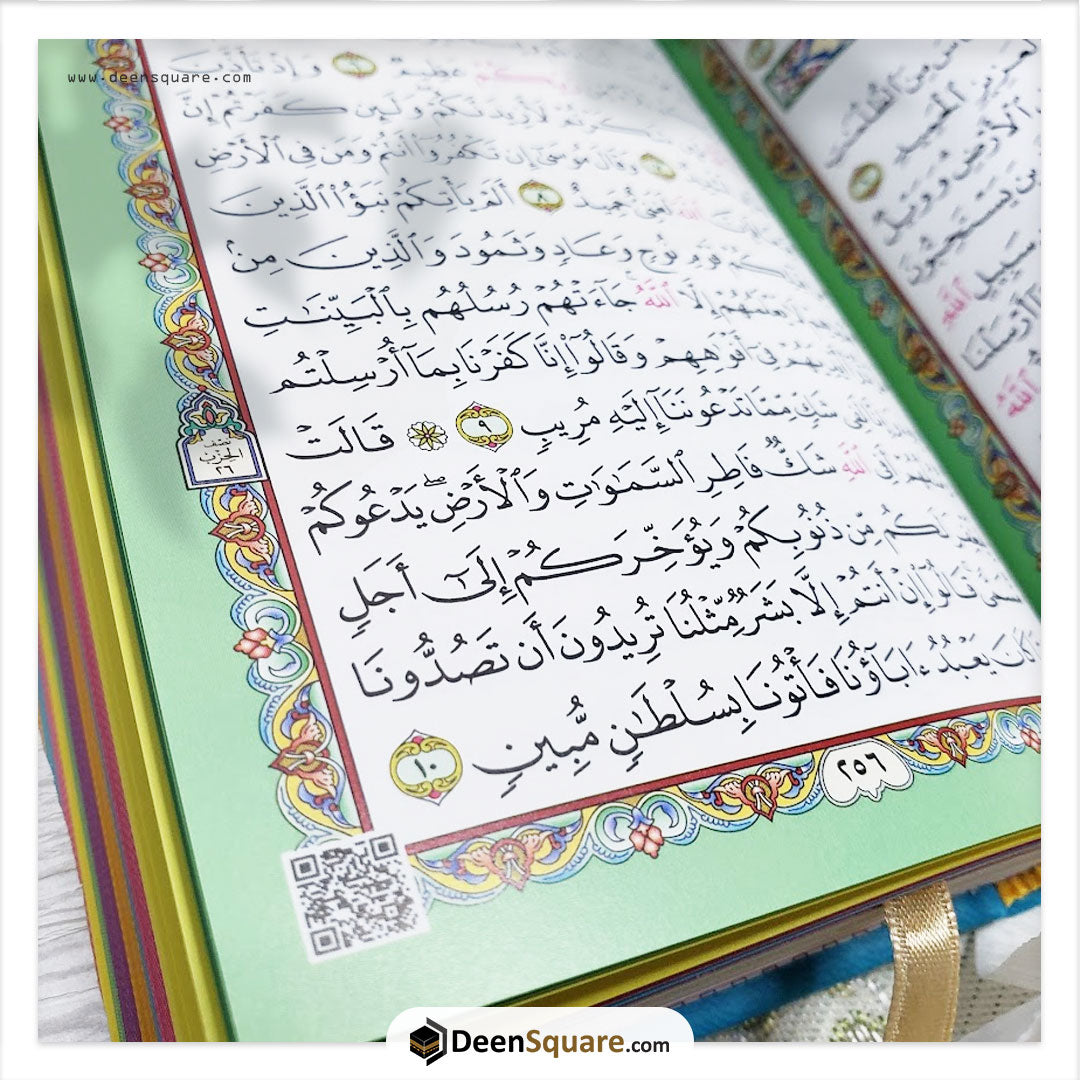 www.deensquare.com
عَظِيمٌ ٦ وَإِذْ تَأَذَّنَ
لَأَزِيدَنَّكُمْ وَلَئِن كَفَرْتُمْ إِنَّ
٧ وَقَالَ مُوسَىٰٓ إِن تَكْفُرُوٓا۟ أَنتُمْ وَمَن فِى ٱلْأَرْضِ
ٱللَّهَ لَغَنِىٌّ حَمِيدٌ ٨ أَلَمْ يَأْتِكُمْ نَبَؤُا۟ ٱلَّذِينَ
قَوْمِ نُوحٍ وَعَادٍ وَثَمُودَ وَٱلَّذِينَ مِنۢ
يَعْلَمُهُمْ إِلَّا ٱللَّهُ جَآءَتْهُمْ رُسُلُهُم بِٱلْبَيِّنَـٰتِ
أَيْدِيَهُمْ فِىٓ أَفْوَٰهِهِمْ وَقَالُوٓا۟ إِنَّا كَفَرْنَا بِمَآ أُرْسِلْتُم
لَفِى شَكٍّ مِّمَّا تَدْعُونَنَآ إِلَيْهِ مُرِيبٍ ٩ ۞ قَالَتْ
أَفِى ٱللَّهِ شَكٌّ فَاطِرِ ٱلسَّمَـٰوَٰتِ وَٱلْأَرْضِ ۖ يَدْعُوكُمْ
لَكُم مِّن ذُنُوبِكُمْ وَيُؤَخِّرَكُمْ إِلَىٰٓ أَجَلٍ
مُّسَمًّى قَالُوٓا۟ إِنْ أَنتُمْ إِلَّا بَشَرٌ مِّثْلُنَا تُرِيدُونَ أَن تَصُدُّونَا
كَانَ يَعْبُدُ ءَابَآؤُنَا فَأْتُونَا بِسُلْطَـٰنٍ مُّبِينٍ ١٠
نصف
الحزب
٢٦
٢٥٦
سَبِيلِ ٱللَّهِ
أَرْسَلْنَا
ٱللَّهُ
DeenSquare.com